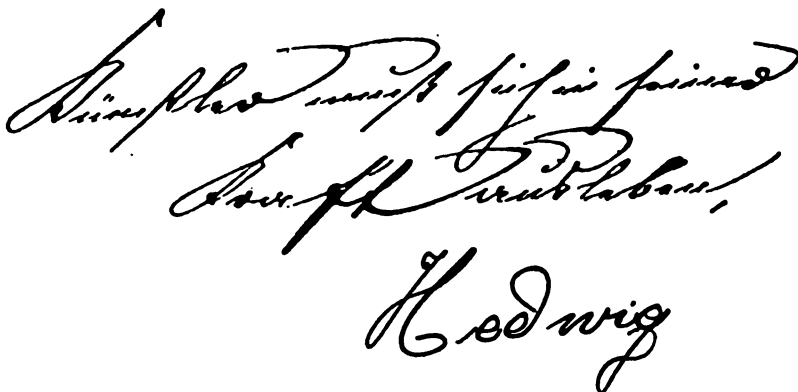 Künstler muß sich in seiner
Kraft ausleben,
Hedwig